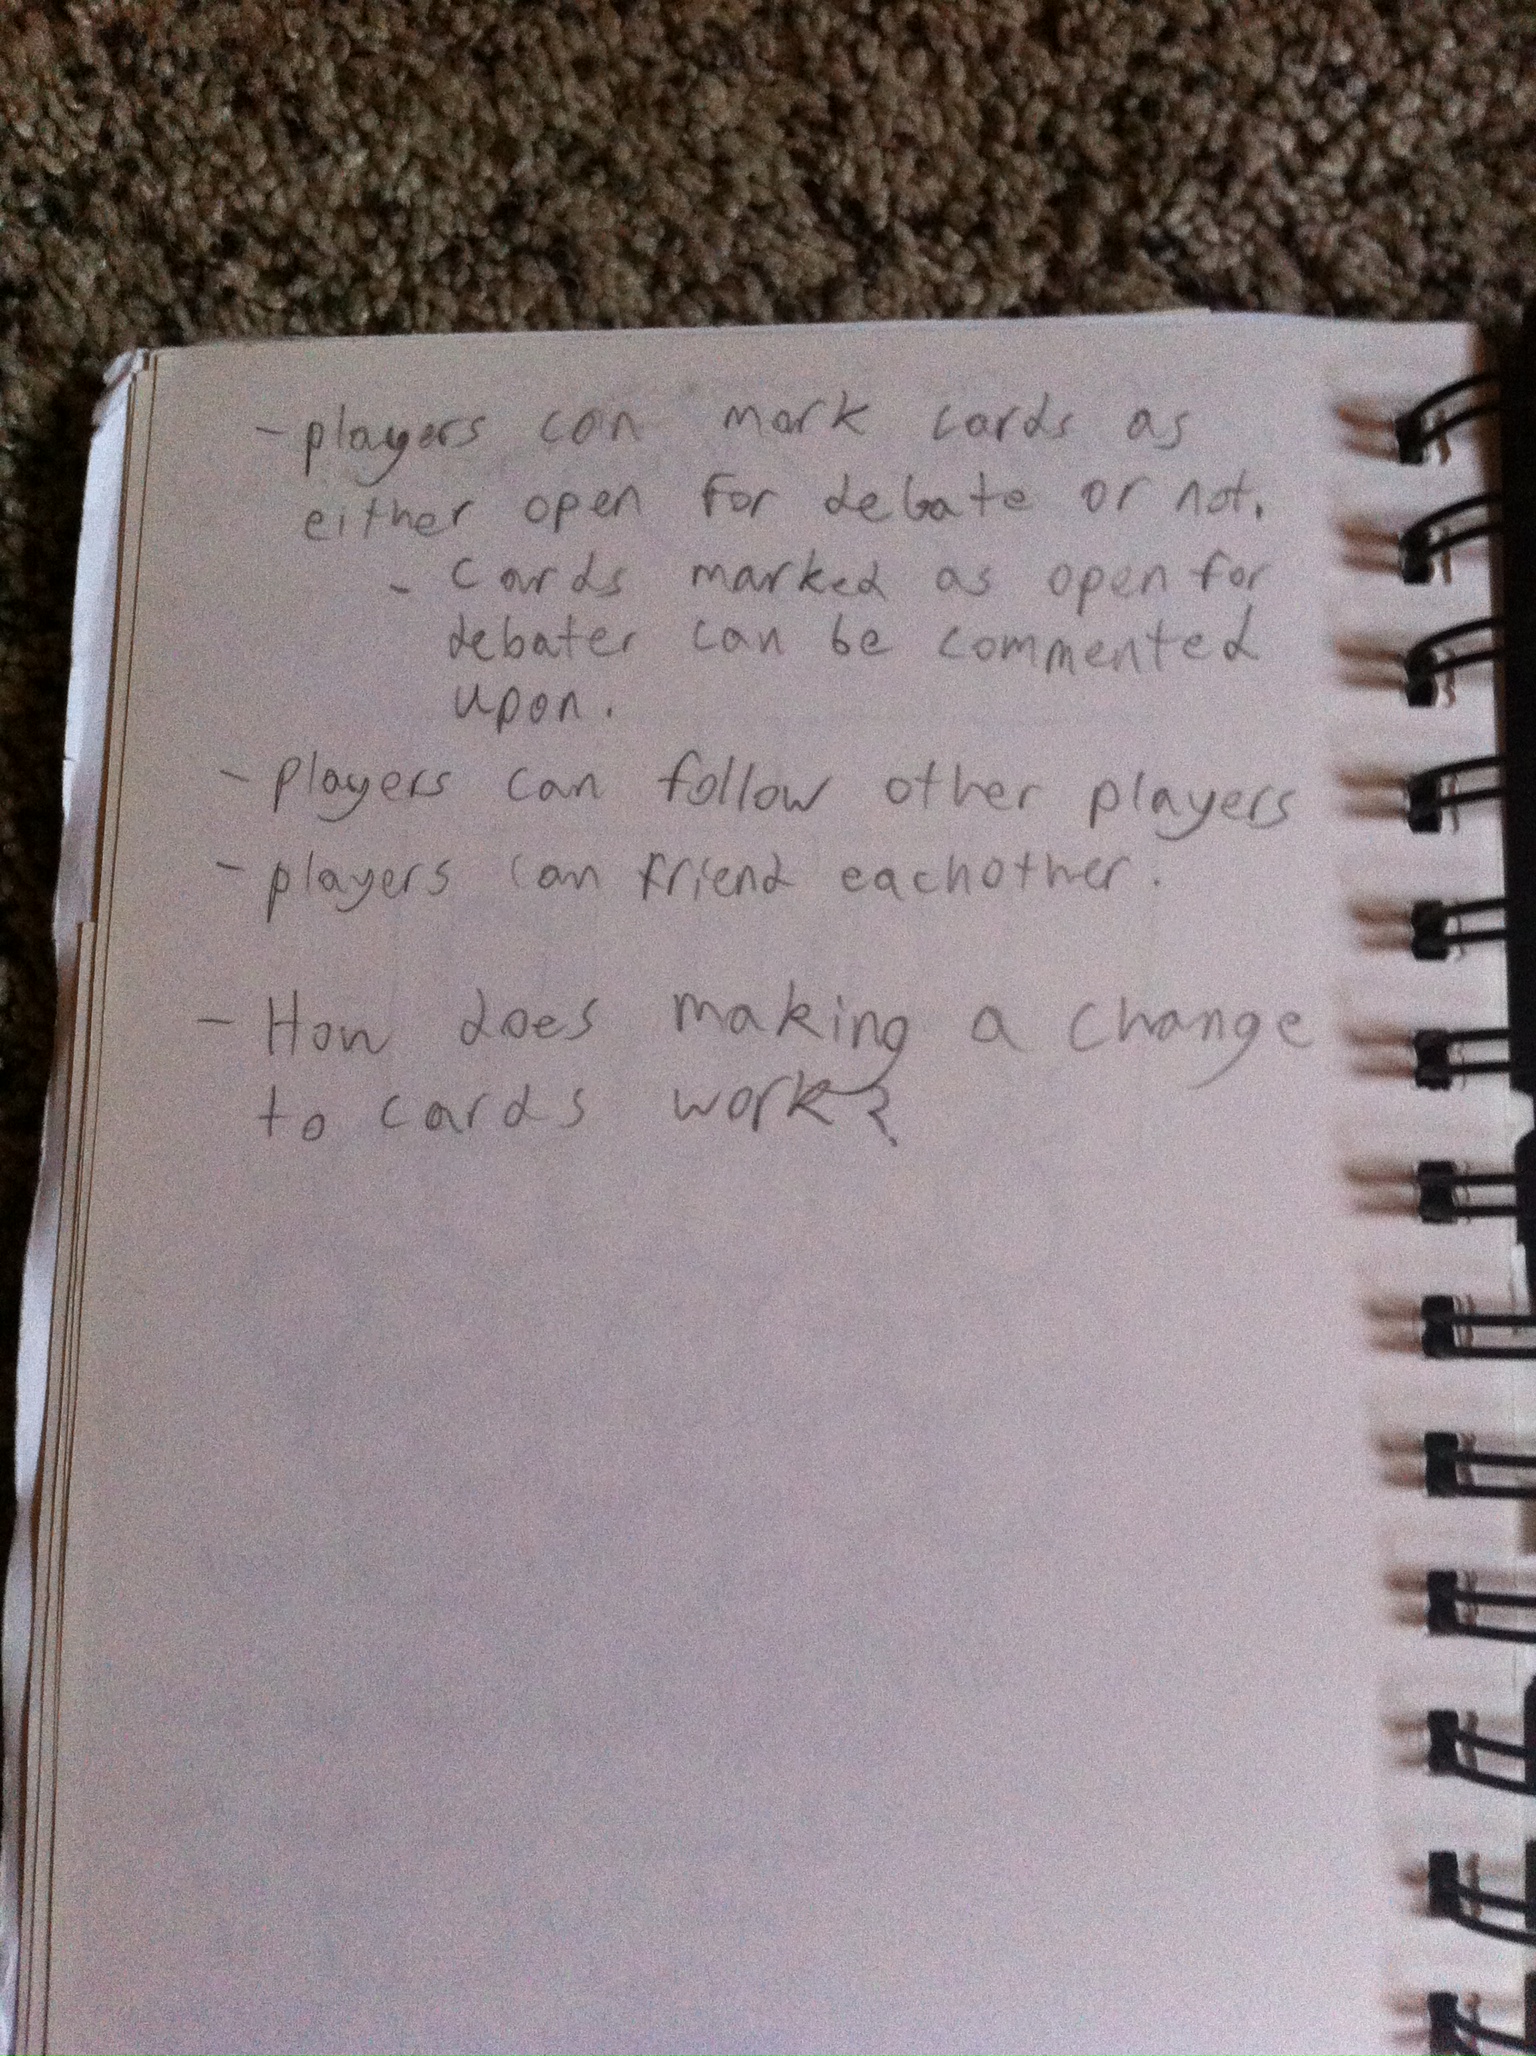 - players can mark cards as
either open for debate or not.
- Cards marked as open for
debater can be commented
upon.
- players can follow other players
- players can friend eachother.
- How does making a change
to cards work?